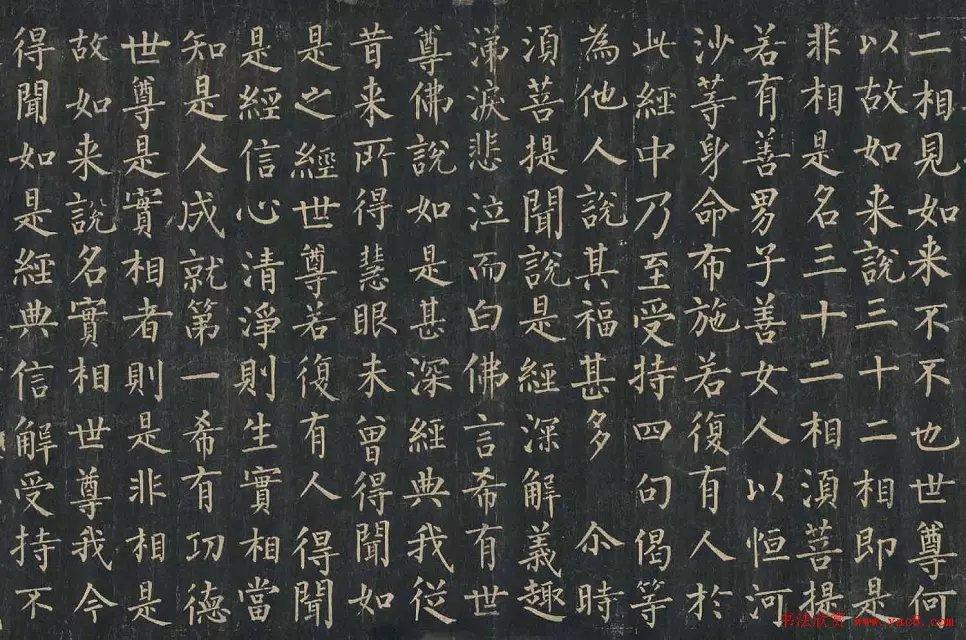 二相見如来不不也世尊何
以故如来說三十二相即是
非相是名三十二相須菩提
若有善男子善女人以恒河
沙等身命布施若復有人於
此經中乃至受持四句偈等
為他人說其福甚多 尒時
須菩提聞說是經深解義趣
涕淚悲泣而白佛言希有世
尊佛說如是甚深經典我從
昔来所得慧眼未曾得聞如
是之經世尊若復有人得聞
是經信心清淨則生實相當
知是人成就第一希有功德
世尊是實相者則是非相是
故如来說名實相世尊我今
得聞如是經典信解受持不
书法欣赏 www.yac8.com